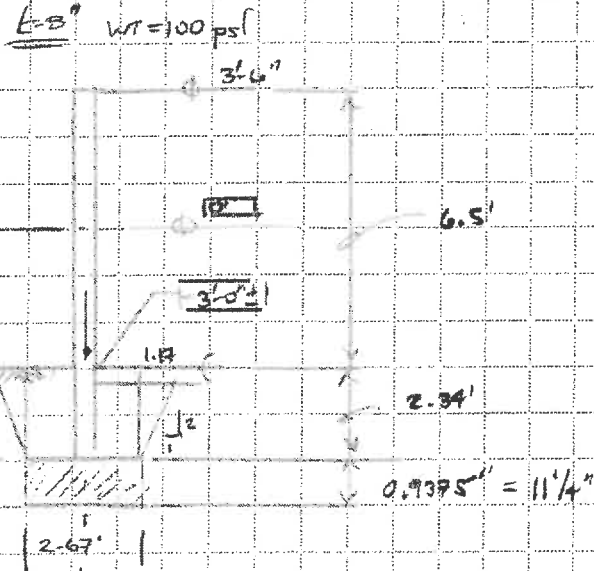 t=8" WT=100 psf
3'-6"
0"
6.5'
3'-0"±
1.17
2.34'
2
1
0.9375' = 11 1/4"
2.67'